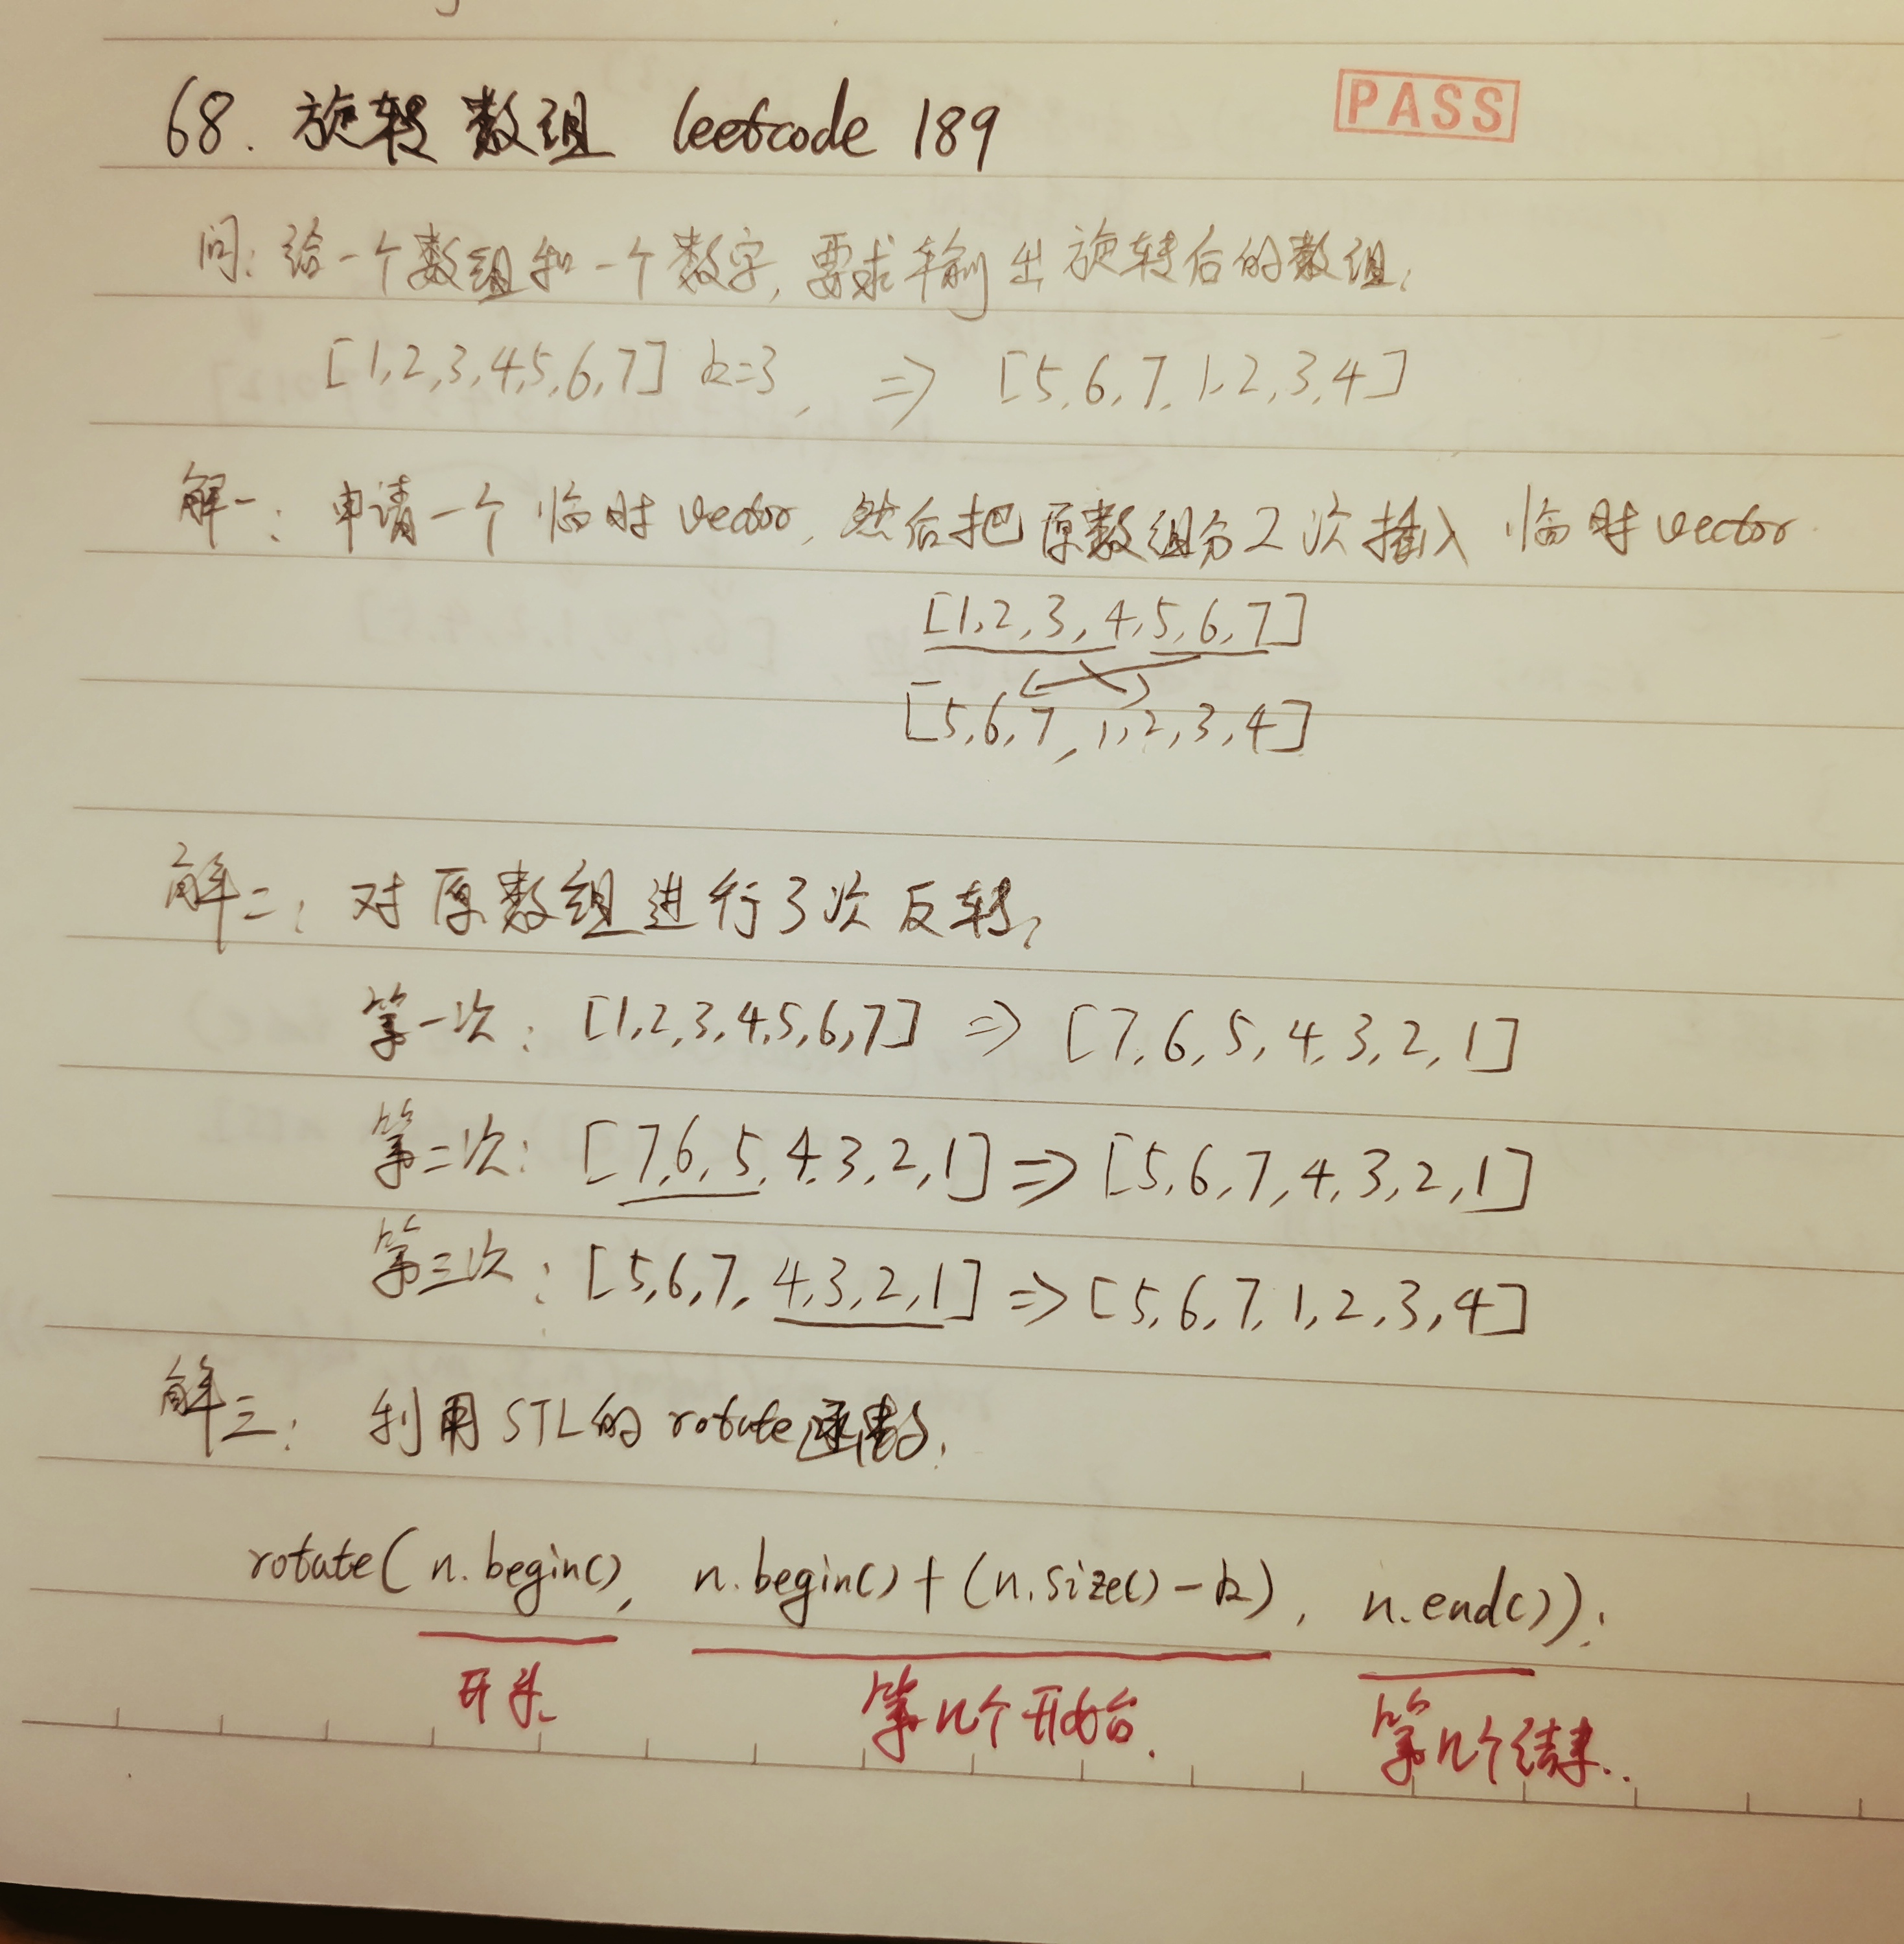 68. 旋转数组 leetcode 189
PASS
问: 给一个数组和一个数字, 要求输出旋转后的数组.
[1,2,3,4,5,6,7] k=3, => [5,6,7,1,2,3,4]
解一: 申请一个临时vector, 然后把原数组分2次插入临时vector.
[1,2,3,4,5,6,7]
[5,6,7,1,2,3,4]
解二: 对原数组进行3次反转,
第一次: [1,2,3,4,5,6,7] => [7,6,5,4,3,2,1]
第二次: [7,6,5,4,3,2,1] => [5,6,7,4,3,2,1]
第三次: [5,6,7,4,3,2,1] => [5,6,7,1,2,3,4]
解三: 利用STL的rotate函数.
rotate(n.begin(), n.begin()+(n.size()-k), n.end());
开头. 第几个开始. 第几个结束..